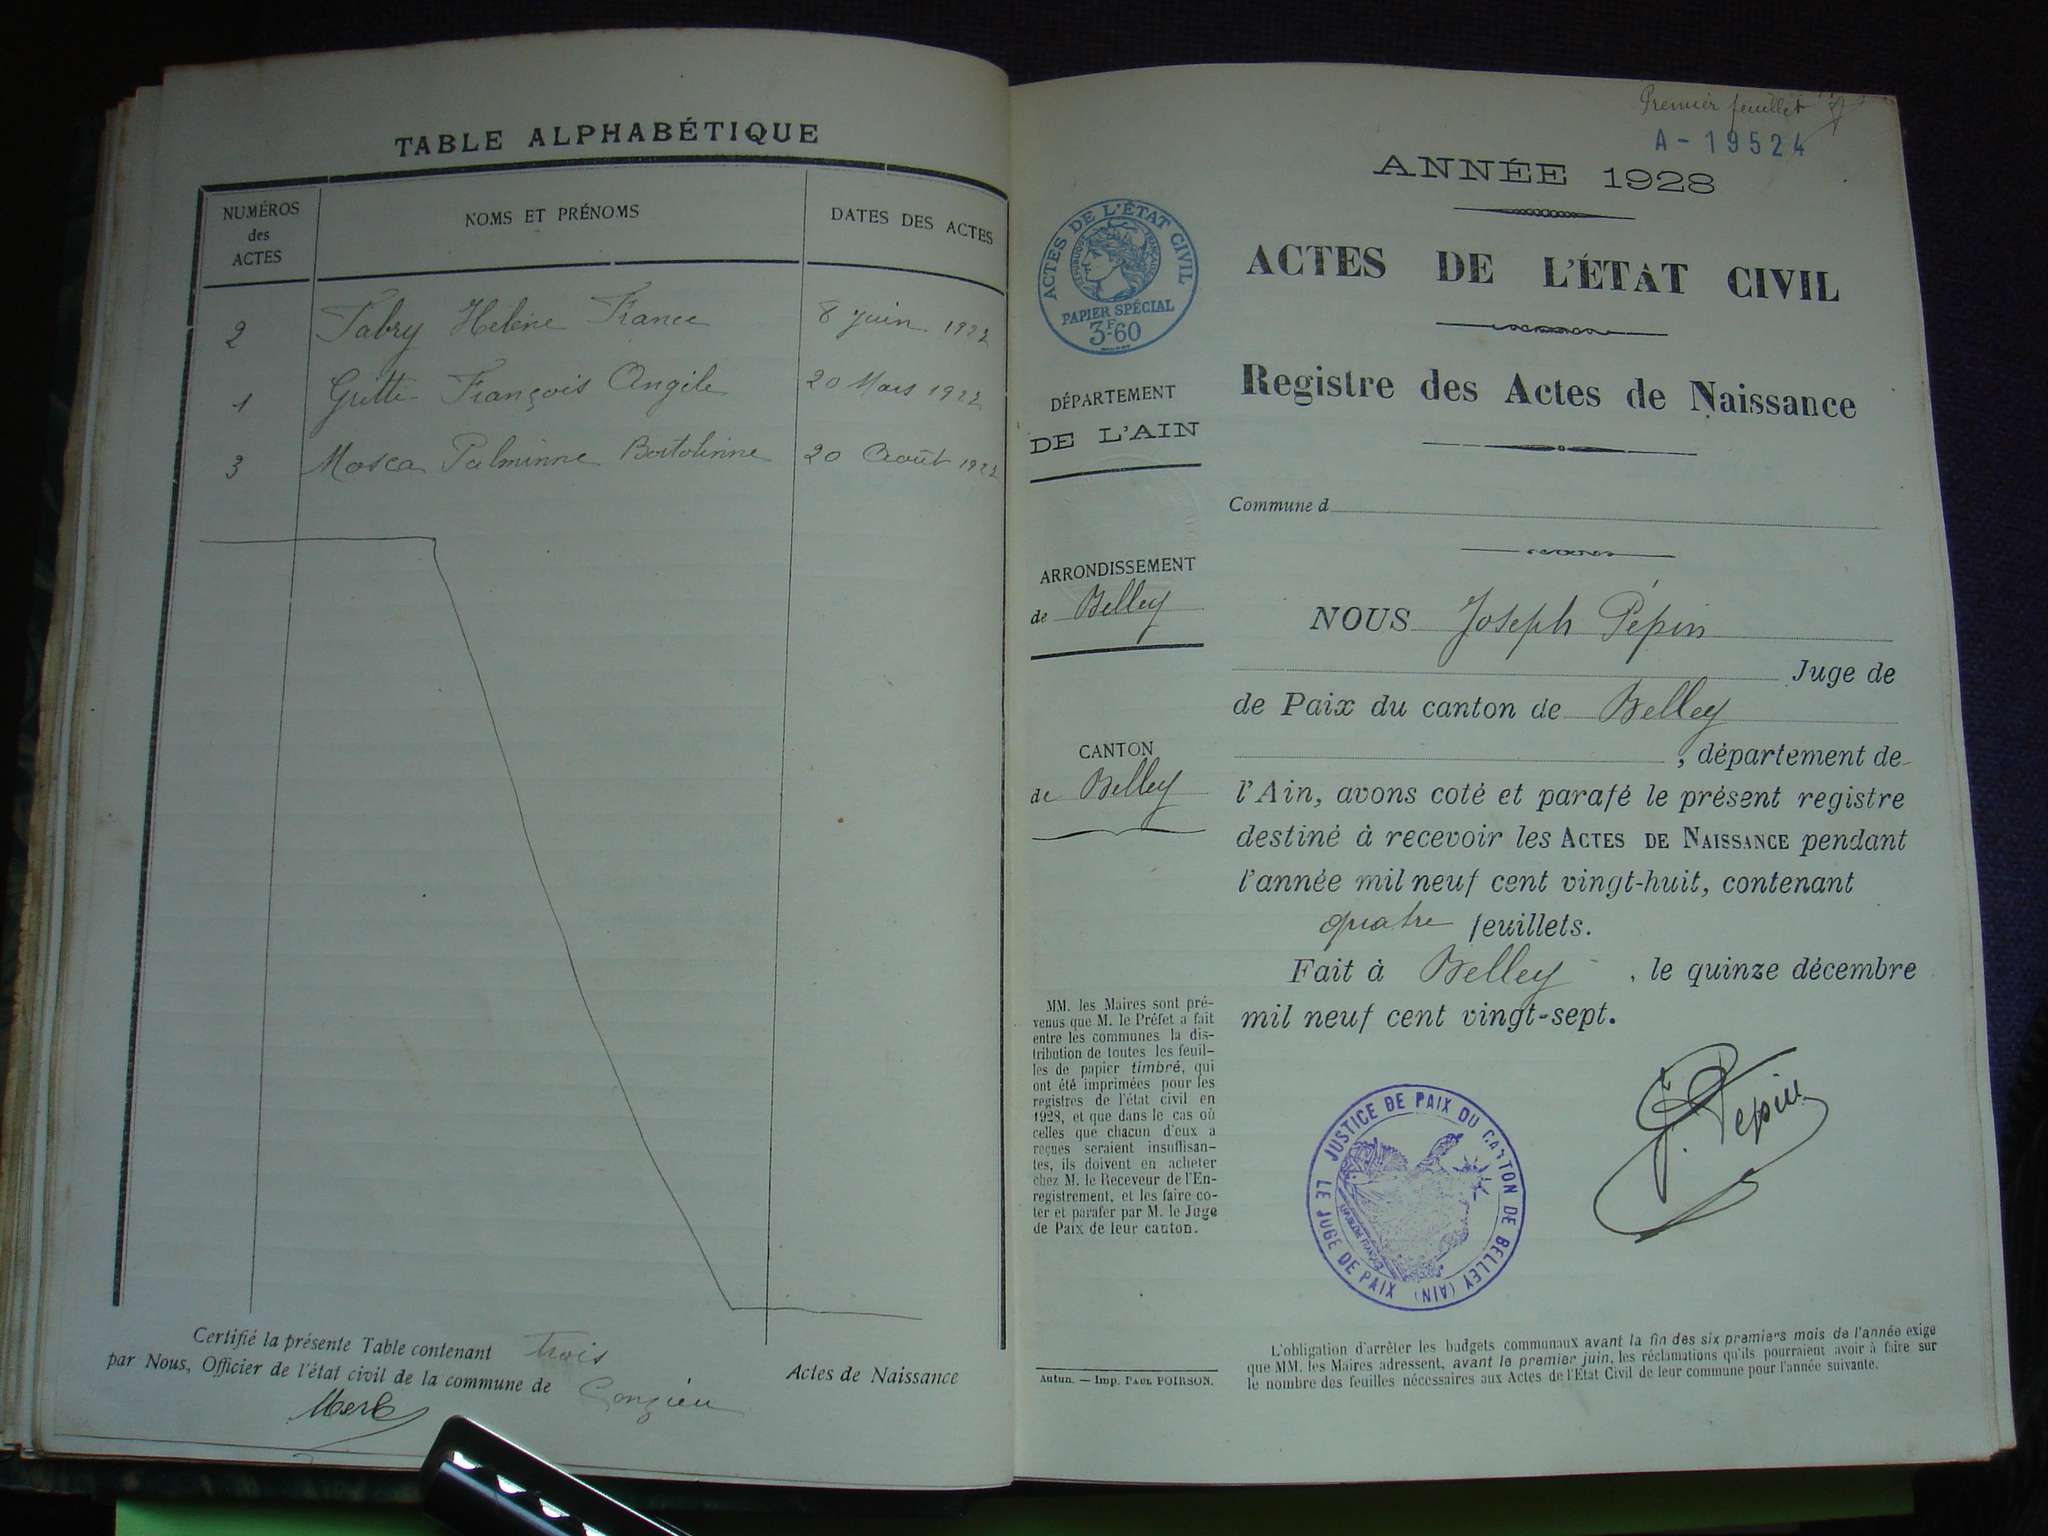 TABLE ALPHABÉTIQUE
NUMÉROS
des
ACTES
NOMS ET PRÉNOMS
DATES DES ACTES
2 Fabry Hélène France 8 juin 1922
1 Gritti François Angile 20 Mars 1922
3 Mosca Palminne Bortolinne 20 Août 1922
Certifié la présente Table contenant trois Actes de Naissance
par Nous, Officier de l'état civil de la commune de Conzieu
Premier feuillet
A-19524
ANNÉE 1928
ACTES DE L'ÉTAT CIVIL
RÉPUBLIQUE FRANÇAISE
PAPIER SPÉCIAL
3F-60
ACTES DE L'ÉTAT CIVIL
Registre des Actes de Naissance
DÉPARTEMENT
DE L'AIN
ARRONDISSEMENT
de Belley
CANTON
de Belley
MM. les Maires sont pré-
venus que M. le Préfet a fait
entre les communes la dis-
tribution de toutes les feuil-
les de papier timbré, qui
ont été imprimées pour les
registres de l'état civil en
1928, et que dans le cas où
celles que chacun d'eux a
reçues seraient insuffisan-
tes, ils doivent en acheter
chez M. le Receveur de l'En-
registrement, et les faire co-
ter et parafer par M. le Juge
de Paix de leur canton.
Autun. — Imp. PAUL POIRSON.
Commune d
NOUS Joseph Pépin
Juge de
de Paix du canton de Belley
, département de
l'Ain, avons coté et parafé le présent registre
destiné à recevoir les ACTES DE NAISSANCE pendant
l'année mil neuf cent vingt-huit, contenant
quatre feuillets.
Fait à Belley, le quinze décembre
mil neuf cent vingt-sept.
JUSTICE DE PAIX DU CANTON DE BELLEY (AIN)
LE JUGE DE PAIX
RÉPUBLIQUE FRANÇAISE
J. Pépin
L'obligation d'arrêter les budgets communaux avant la fin des six premiers mois de l'année exige
que MM. les Maires adressent, avant le premier juin, les réclamations qu'ils pourraient avoir à faire sur
le nombre des feuilles nécessaires aux Actes de l'État Civil de leur commune pour l'année suivante.